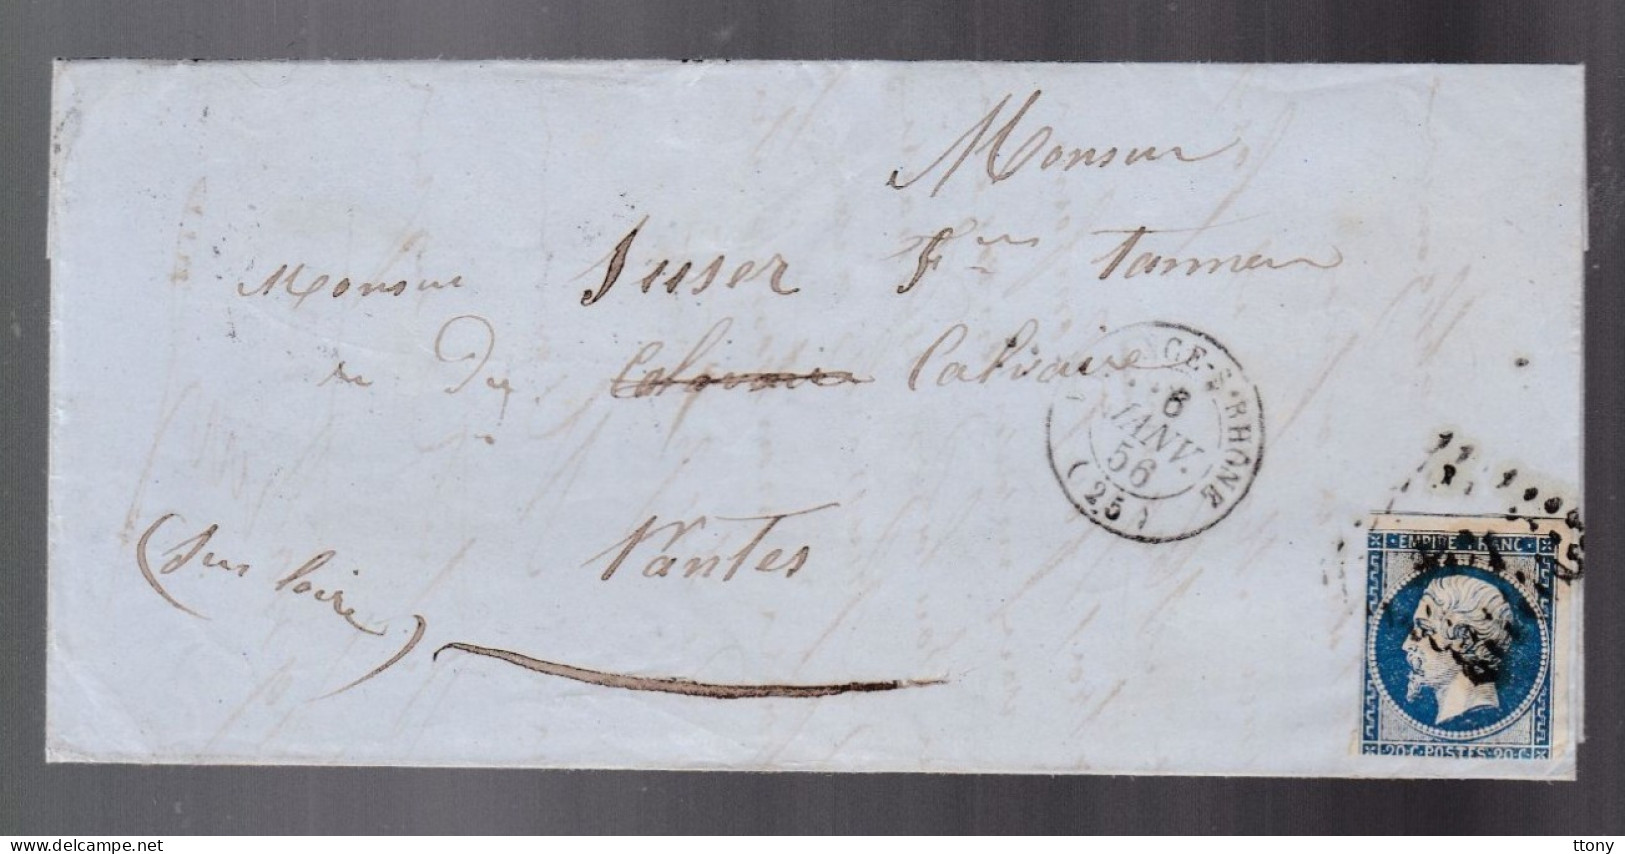 Monsieur
Monsieur Suser Fres Tanneur
rue Du Calvaire Calvaire
Nantes
(Sur Loire)
NCE-S-RHÔNE
6
JANV.
56
(25)
EMPIRE FRANC
20·C·POSTES·20·C
delcampe.net
ttony